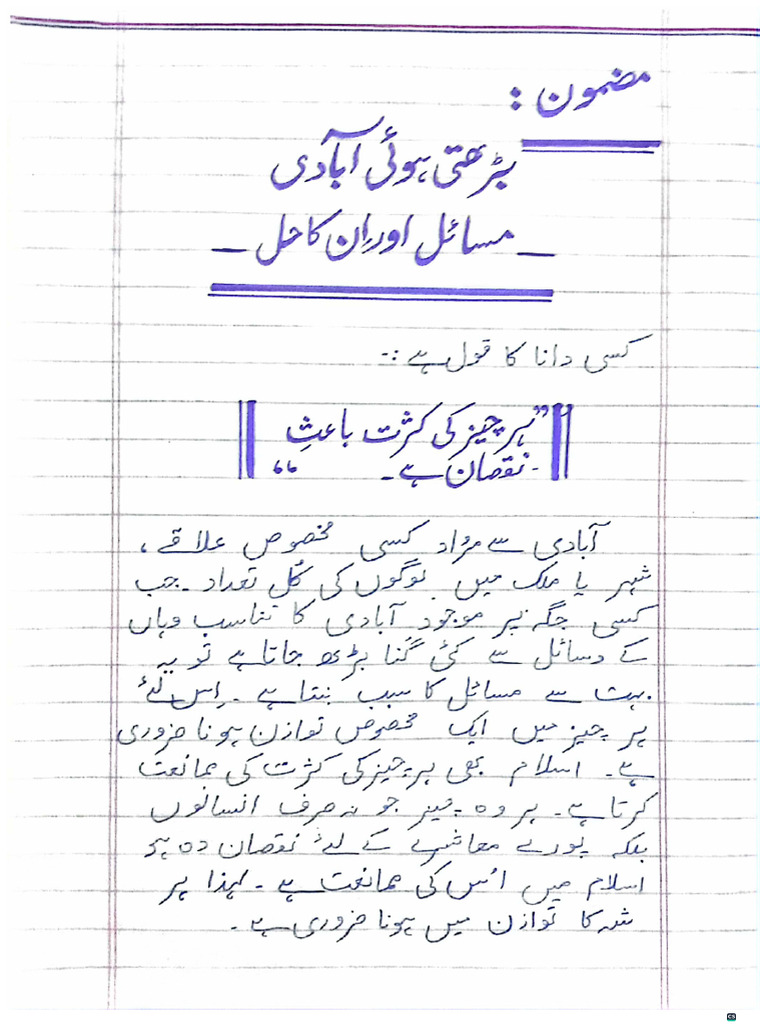 مضمون :
بڑھتی ہوئی آبادی
_ مسائل اور اِن کا حل _
کسی دانا کا قول ہے :-
”ہر چیز کی کثرت باعثِ
نقصان ہے۔“
آبادی سے مُراد کسی مخصوص علاقے ،
شہر یا ملک میں لوگوں کی کُل تعداد ۔ جب
کسی جگہ پر موجود آبادی کا تناسب وہاں
کے وسائل سے کئی گُنا بڑھ جاتا ہے تو یہ
بہت سے مسائل کا سبب بنتا ہے ۔ اِس لئے
ہر چیز میں ایک مخصوص توازن ہونا ضروری
ہے۔ اسلام بھی ہر چیز کی کثرت کی ممانعت
کرتا ہے۔ ہر وہ چیز جو نہ صرف انسانوں
بلکہ پورے معاشرے کے لئے نقصان دہ ہو
اسلام میں اُس کی ممانعت ہے ۔ لہٰذا ہر
شے کا توازن میں ہونا ضروری ہے ۔
CS